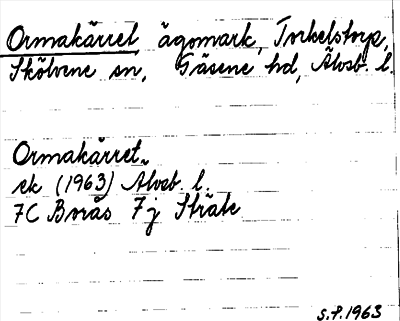 Ormakärret ägomark, Torkelstorp,
Skölvene sn, Gäsene hd, Älvsb. l.
Ormakärret
ek (1963) Älvsb. l.
7C Borås 7j Stråte
S.P. 1963